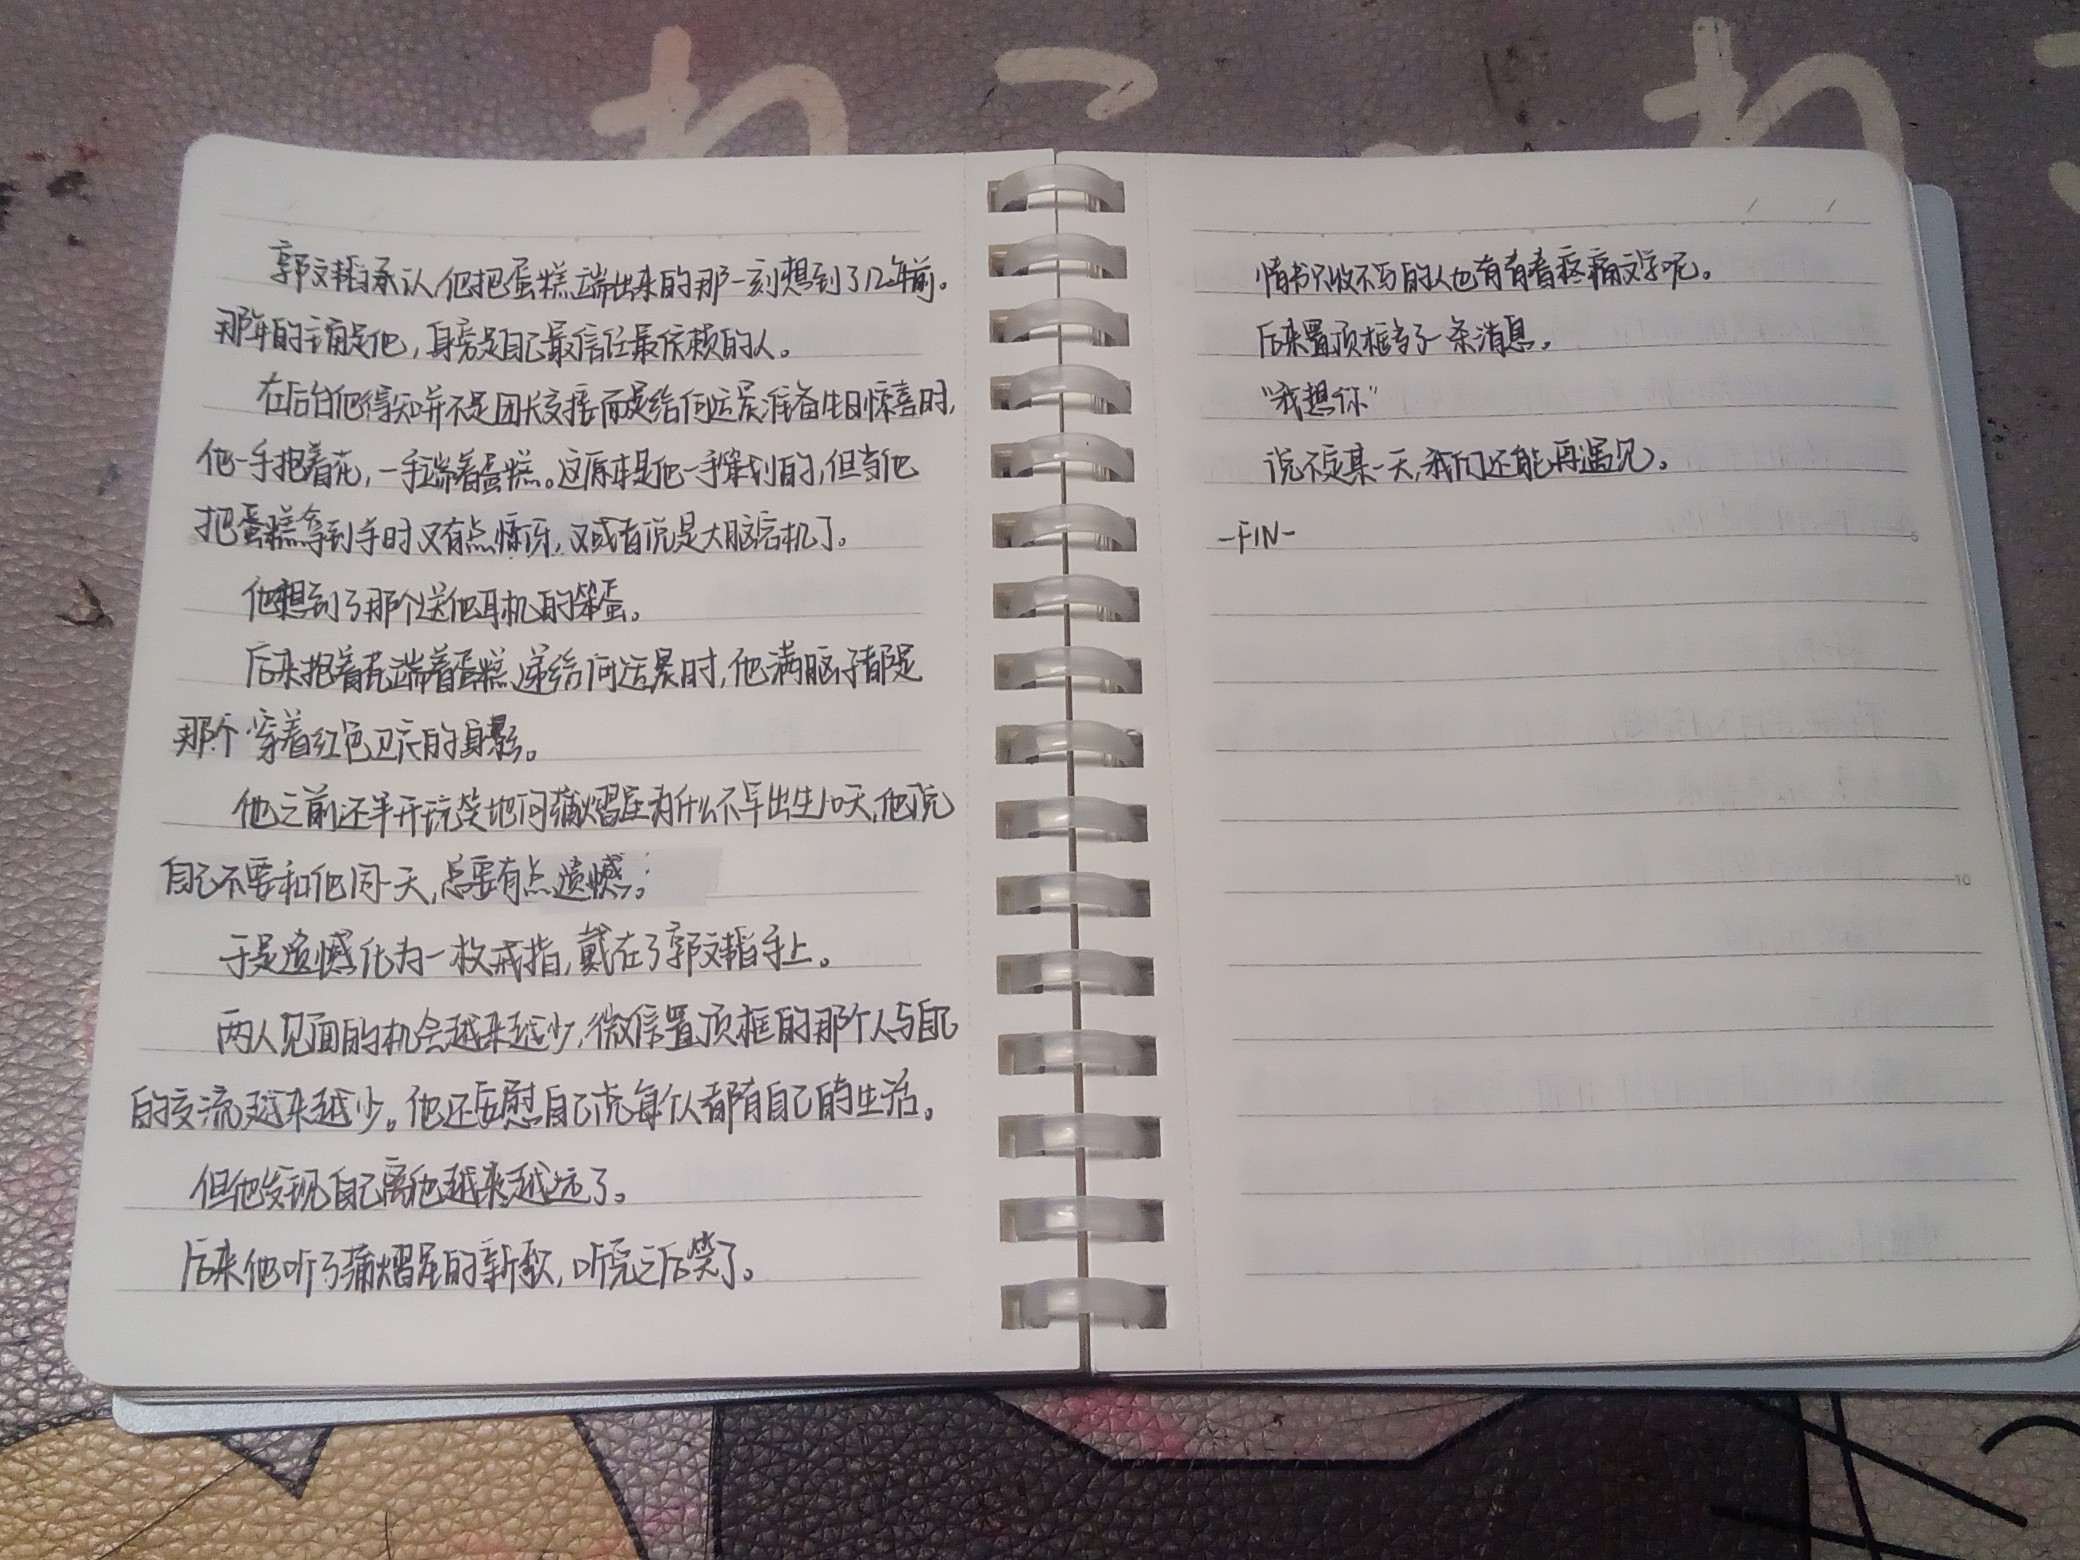 わこ
わこ
郭文韬承认他把蛋糕端出来的那一刻想到了12年前。
那年的主角是他，身旁是自己最信任最依赖的人。
在后台他得知并不是团长交接而是给何运晨准备生日惊喜时，
他一手抱着花，一手端着蛋糕。这原本是他一手策划的，但当他
把蛋糕拿到手时又有点惊讶，又或者说是大脑宕机了。
他想到了那个送他耳机的笨蛋。
后来抱着花端着蛋糕递给何运晨时，他满脑子都是
那个穿着红色卫衣的身影。
他之前还半开玩笑地问蒲熠星为什么不早出生10天，他说
自己不要和他同一天，总要有点遗憾。
于是遗憾化为一枚戒指，戴在了郭文韬手上。
两人见面的机会越来越少，微信置顶框的那个人与自己
的交流越来越少。他还安慰自己说每个人都有自己的生活。
但他发现自己离他越来越远了。
后来他听了蒲熠星的新歌，听完之后笑了。
情书只收不写的人也有有着疼痛文学呢。
后来置顶框多了一条消息。
“我想你”
说不定某一天，我们还能再遇见。
-FIN-
5
10